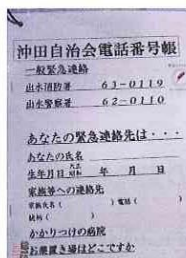 沖田自治会電話番号帳
一般緊急連絡
出水消防署 63-0119
出水警察署 62-0110
あなたの緊急連絡先は・・・
あなたの氏名
生年月日 大正 昭和 年 月 日
家族等への連絡先
家族氏名( ) 電話(
続柄( )
かかりつけの病院
お薬置き場はどこですか